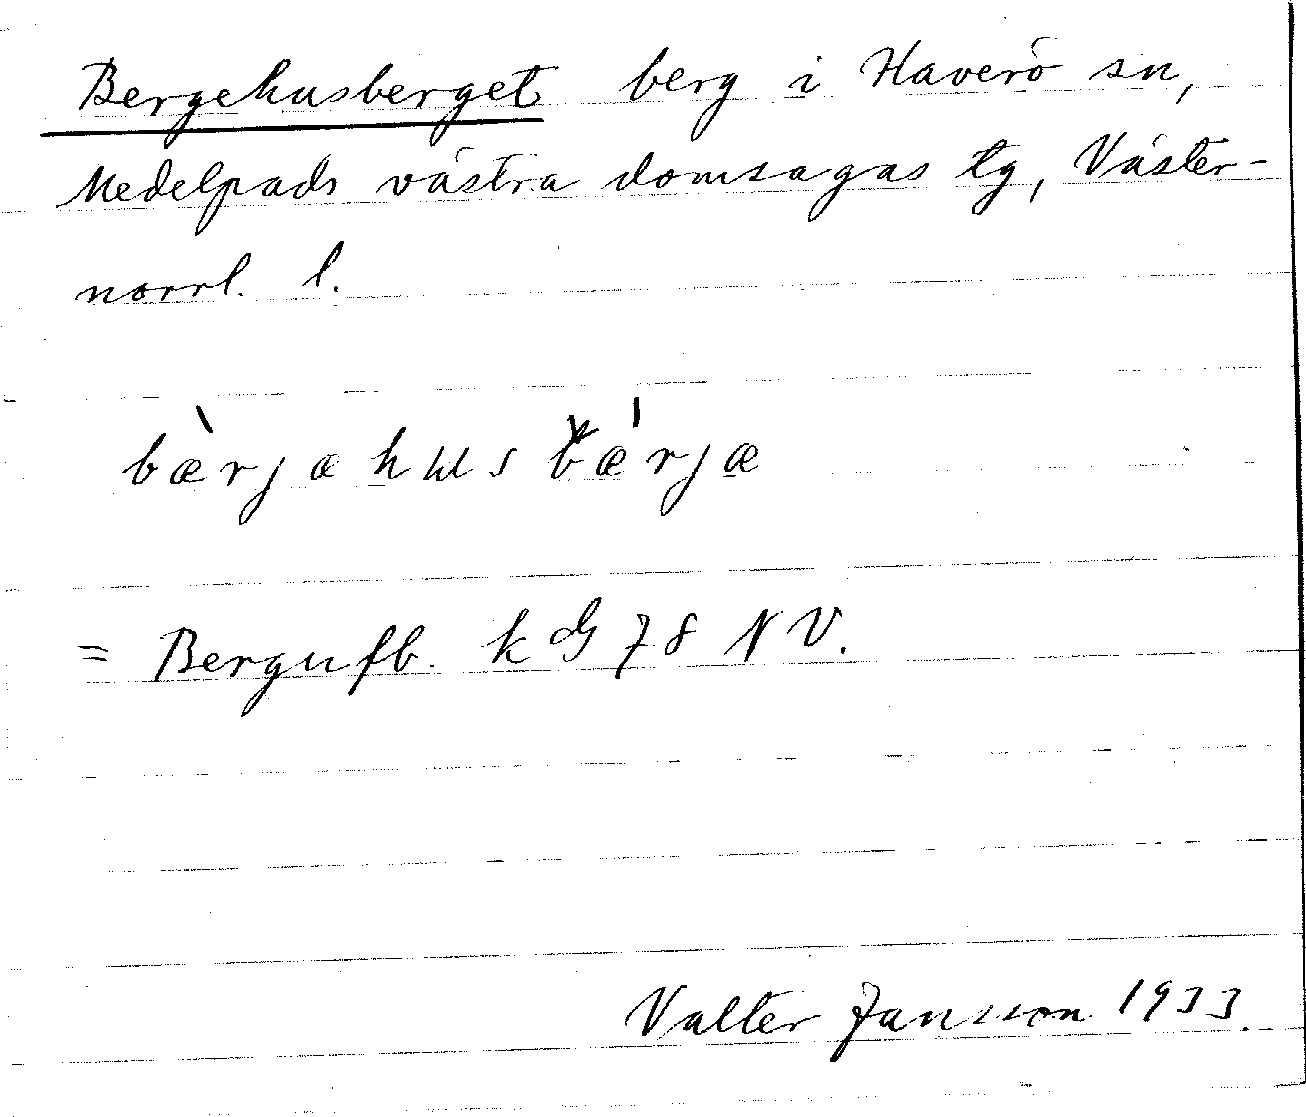 Bergehusberget berg i Haverö sn,
Medelpads västra domsagas tg, Väster-
norrl. l.
bæ̀rjæhusbǽrjæ
= Bergufb. kG 78 NV.
Valter Jansson 1933.